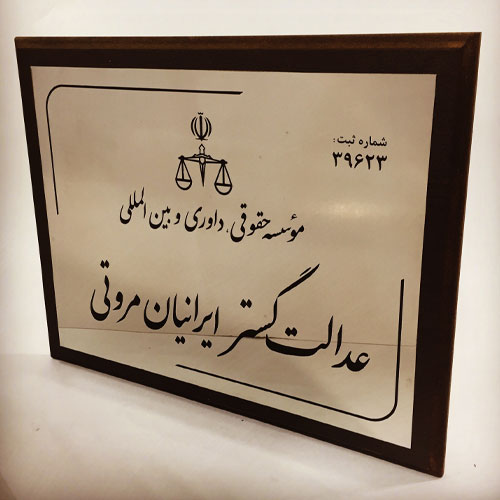 شماره ثبت:
۳۹۶۲۳
مؤسسه حقوقی، داوری و بین المللی
عدالت گستر ایرانیان مروتی